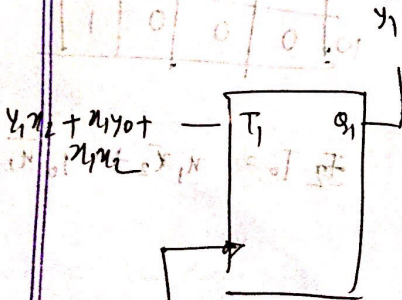 1 0 0 0
y₁
y₁x₂ + x₁y₀ +
x₁x₂
T₁ Q₁